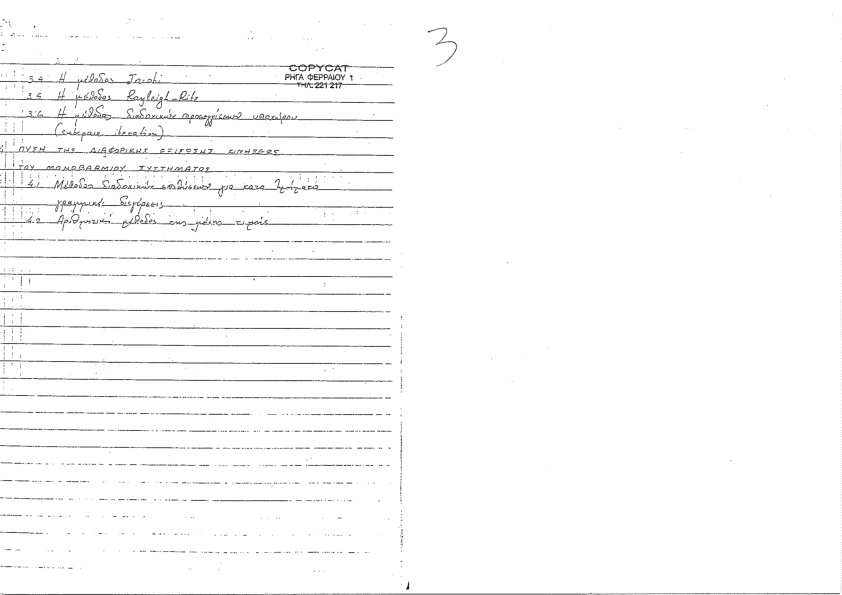 3
COPYCAT
ΡΗΓΑ ΦΕΡΡΑΙΟΥ 1
ΤΗΛ. 221 217
3.4 Η μέθοδος Jacobi
3.5 Η μέθοδος Rayleigh-Ritz
3.6 Η μέθοδος διαδοχικών προσεγγίσεων υποχώρου
(subspace iteration)
ΛΥΣΗ ΤΗΣ ΔΙΑΦΟΡΙΚΗΣ ΕΞΙΣΩΣΗΣ ΚΙΝΗΣΕΩΣ
ΤΟΥ ΜΟΝΟΒΑΘΜΙΟΥ ΣΥΣΤΗΜΑΤΟΣ
4.1 Μέθοδος διαδοχικών επιλύσεων για κατά τμήματα
γραμμικές διεγέρσεις
4.2 Αριθμητική μέθοδος της μέσης τιμής